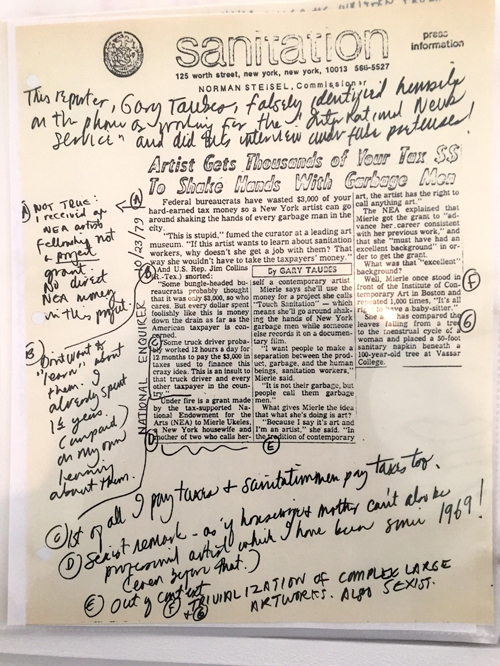 sanitation
press
information
125 worth street, new york, new york, 10013 566-5527
NORMAN STEISEL, Commissioner
This reporter, Gary Taubes, falsely identified himself
on the phone as working for the "International News
Service" and did this interview under false pretenses!
Artist Gets Thousands of Your Tax $$
To Shake Hands With Garbage Men
(A) NOT TRUE:
I received an
NEA artist
fellowship not
a project
grant.
No direct
NEA money
in this project.
(B) Don't want to
"learn" about
them. I
already spent
1½ years
(unpaid)
on my own
learning
about them.
NATIONAL ENQUIRER 10/23/79
(A)
Federal bureaucrats have wasted $3,000 of your
hard-earned tax money so a New York artist can go
around shaking the hands of every garbage man in the
city.
"This is stupid," fumed the curator at a leading art
museum. "If this artist wants to learn about sanitation
workers, why doesn't she get a job with them? That
way she wouldn't have to take the taxpayers' money."
(B)
And U.S. Rep. Jim Collins
(R.-Tex.) snorted:
"Some bungle-headed bu-
reaucrats probably thought
that it was only $3,000, so who
cares. But every dollar spent
foolishly like this is money
down the drain as far as the
American taxpayer is con-
cerned.
(C)
"Some truck driver proba-
bly worked 12 hours a day for
12 months to pay the $3,000 in
taxes used to finance this
crazy idea. This is an insult to
that truck driver and every
other taxpayer in the coun-
try."
Under fire is a grant made
by the tax-supported Na-
tional Endowment for the
Arts (NEA) to Mierle Ukeles,
a New York housewife and
mother of two who calls her-
(D)
By GARY TAUBES
self a contemporary artist.
Mierle says she'll use the
money for a project she calls
"Touch Sanitation" — which
means she'll go around shak-
ing the hands of New York
garbage men while someone
else records it on a documen-
tary film.
"I want people to make
a separation between the prod-
uct, garbage, and the human
beings, sanitation workers,"
Mierle said.
"It is not their garbage, but
people call them garbage
men."
What gives Mierle the idea
that what she's doing is art?
"Because I say it's art and
I'm an artist," she said. "In
the tradition of contemporary
(E)
art, the artist has the right to
call anything art."
The NEA explained that
Mierle got the grant to "ad-
vance her career consistent
with her previous work," and
that she "must have had an
excellent background" in or-
der to get the grant.
What was that "excellent"
background?
Well, Mierle once stood in
front of the Institute of Con-
temporary Art in Boston and
repeated 1,000 times, "It's all
right to have a baby-sitter."
She also has compared the
leaves falling from a tree
to the menstrual cycle of a
woman and placed a 50-foot
sanitary napkin beneath a
100-year-old tree at Vassar
College.
(F)
(G)
(C) 1st of all I pay taxes & sanitationmen pay taxes too.
(D) Sexist remark - as if housewives & mother can't also be
professional artist which I have been since 1969!
(even before that.)
(E) Out of context
(F) & (G) TRIVIALIZATION OF COMPLEX LARGE
ARTWORKS. ALSO SEXIST.